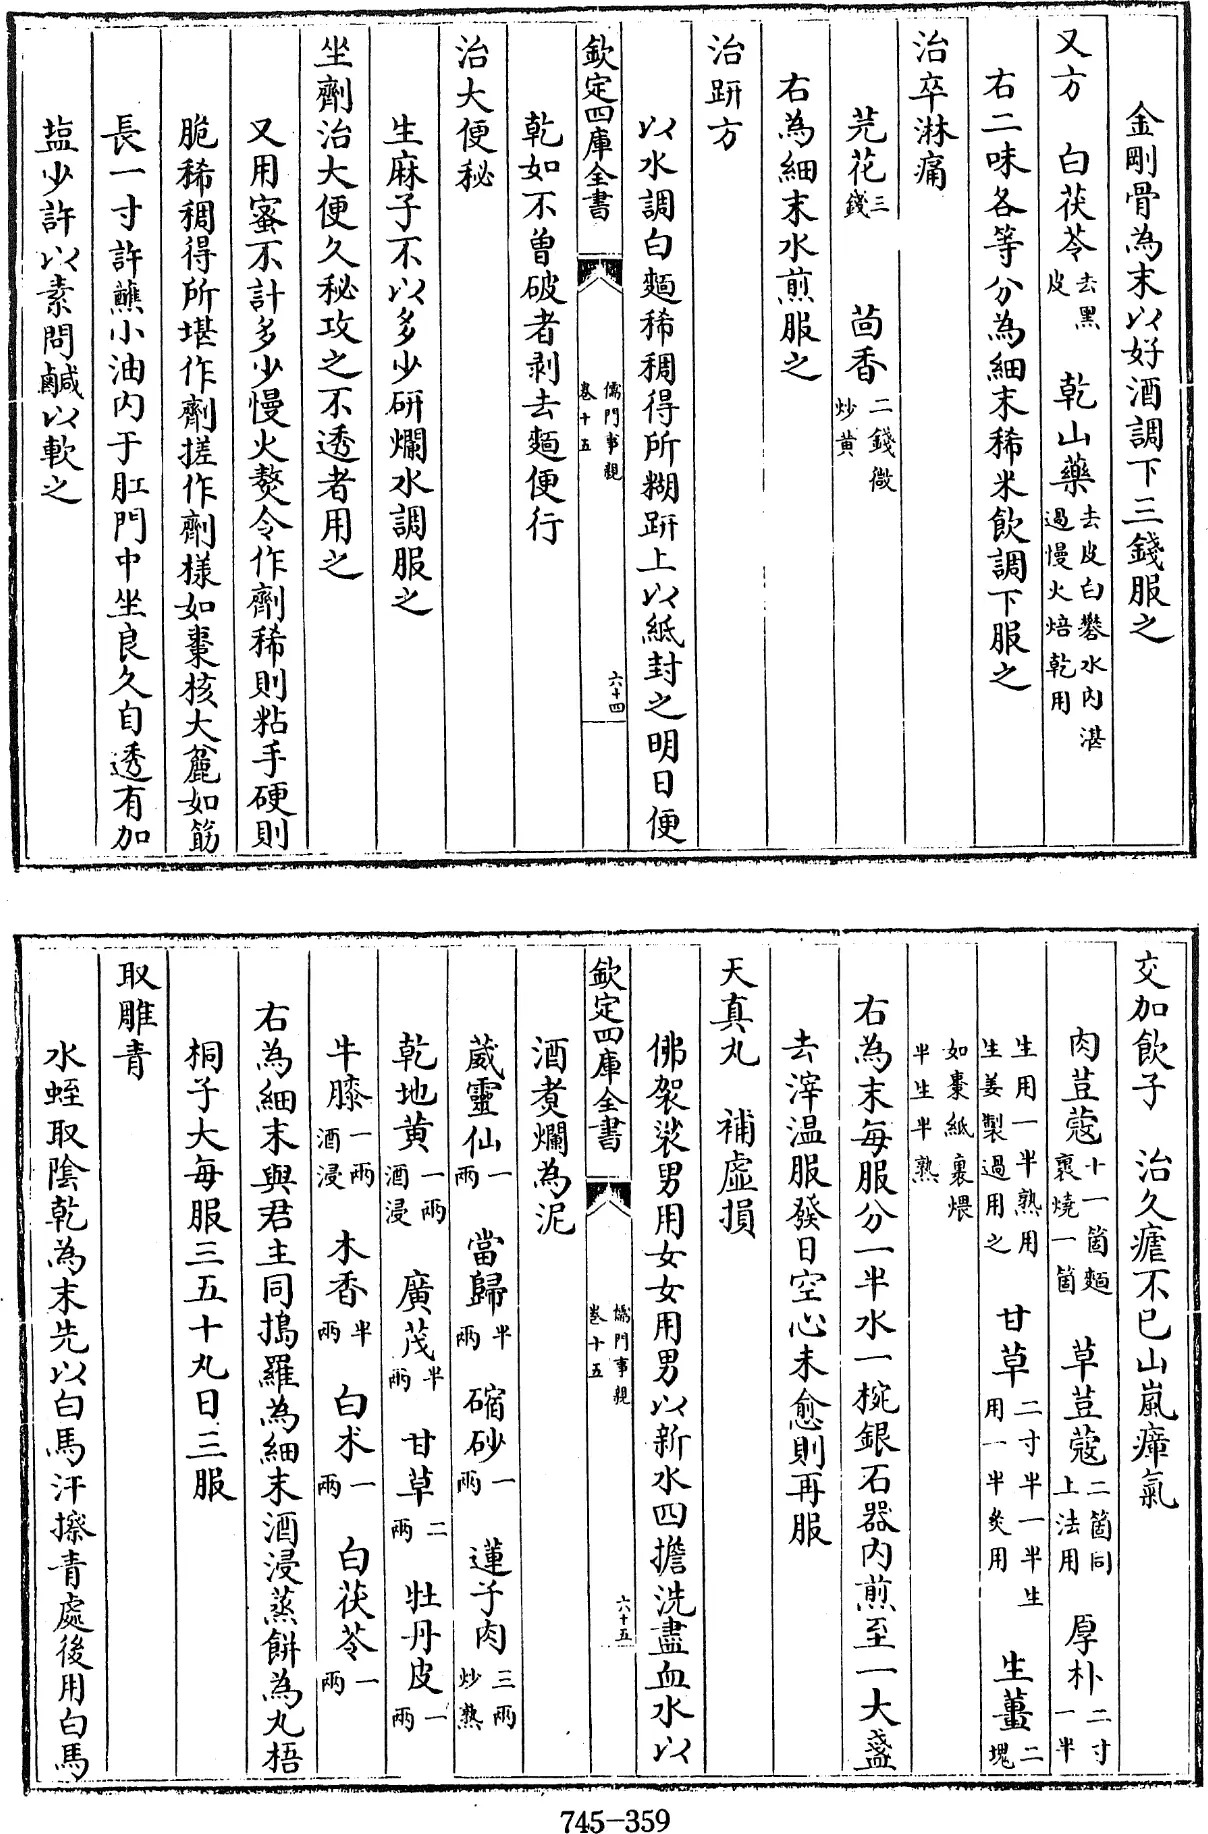 金剛骨為末以好酒調下三錢服之
又方 白茯苓去黑皮 乾山藥去皮白礬水內湛過慢火焙乾用
右二味各等分為細末稀米飲調下服之
治卒淋痛
芫花三錢 茴香二錢微炒黄
右為細末水煎服之
治趼方
以水調白麵稀稠得所糊趼上以紙封之明日便
欽定四庫全書 儒門事親卷十五 六十四
乾如不曾破者剥去麵便行
治大便秘
生麻子不以多少研爛水調服之
坐劑治大便久秘攻之不透者用之
又用蜜不計多少慢火熬令作劑稀則粘手硬則
脆稀稠得所堪作劑搓作劑樣如棗核大麄如筯
長一寸許蘸小油内于肛門中坐良久自透有加
塩少許以素問鹹以軟之
交加飲子 治久瘧不已山嵐瘴氣
肉荳蔻十一箇麵裹燒一箇 草荳蔻二箇同上法用 厚朴二寸一半
生用一半熟用生姜製過用之 甘草二寸半一半生用一半炙用 生薑二塊
如棗紙裹煨半生半熟
右為末每服分一半水一椀銀石器内煎至一大盞
去滓温服發日空心未愈則再服
天真丸 補虛損
佛袈裟男用女女用男以新水四擔洗盡血水以
欽定四庫全書 儒門事親卷十五 六十五
酒煑爛為泥
葳靈仙一兩 當歸半兩 硇砂一兩 蓮子肉三兩炒熟
乾地黄一兩酒浸 廣茂半兩 甘草二兩 牡丹皮一兩
牛膝一兩酒浸 木香半兩 白术一兩 白茯苓一兩
右為細末與君主同搗羅為細末酒浸蒸餅為丸梧
桐子大每服三五十丸日三服
取雕青
水蛭取陰乾為末先以白馬汗擦青處後用白馬
745-359